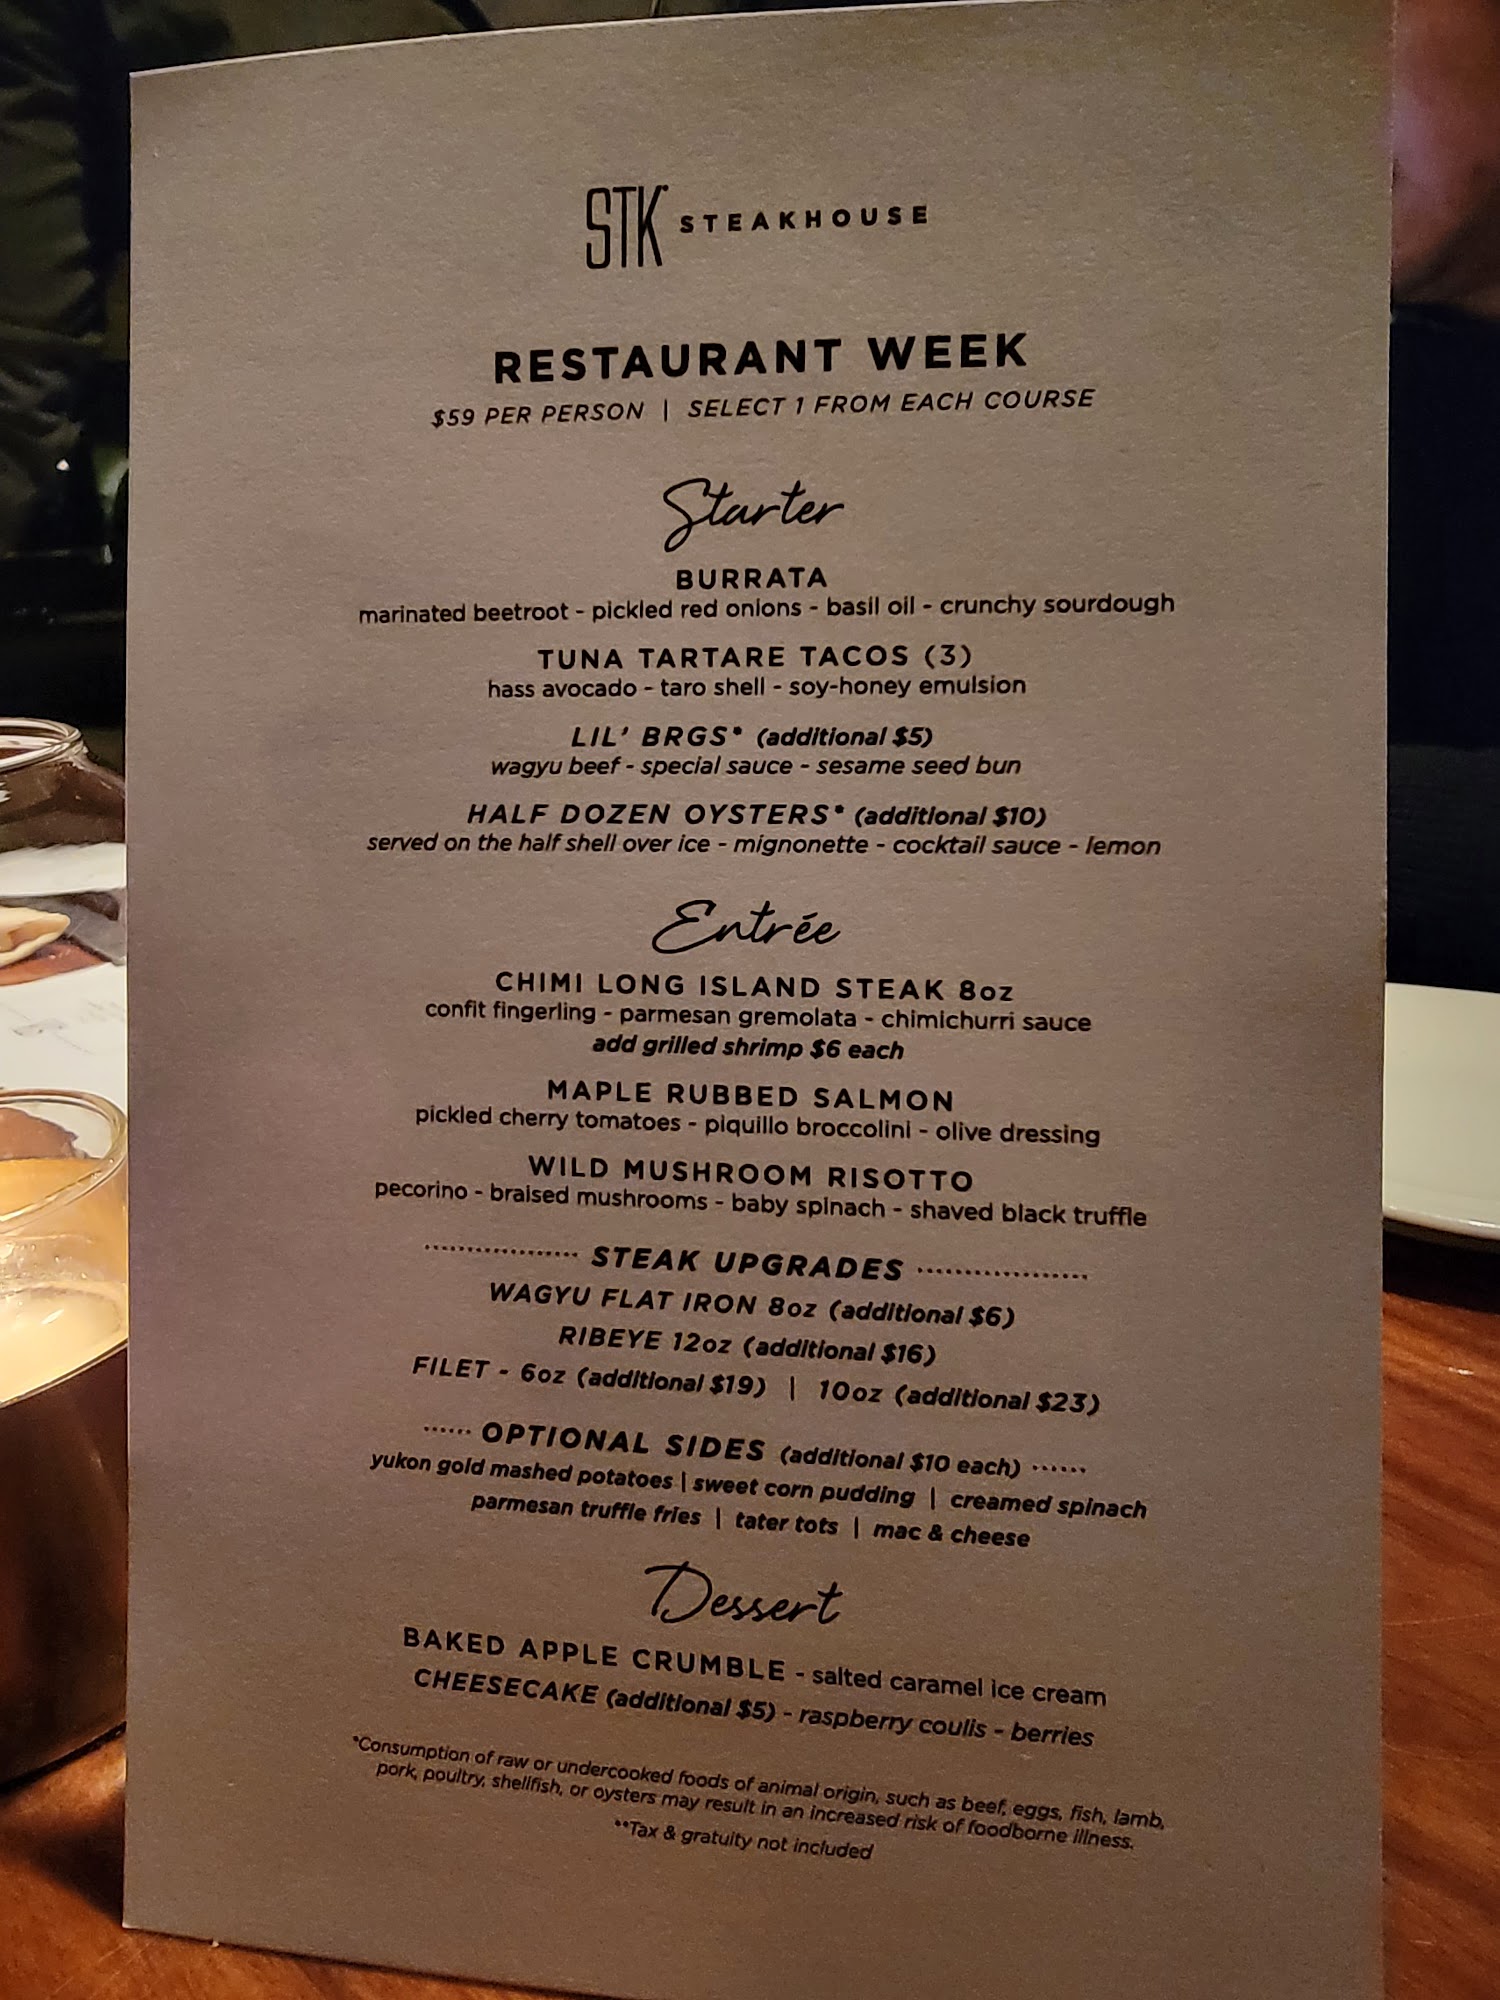 STK STEAKHOUSE
RESTAURANT WEEK
$59 PER PERSON | SELECT 1 FROM EACH COURSE
Starter
BURRATA
marinated beetroot - pickled red onions - basil oil - crunchy sourdough
TUNA TARTARE TACOS (3)
hass avocado - taro shell - soy-honey emulsion
LIL' BRGS* (additional $5)
wagyu beef - special sauce - sesame seed bun
HALF DOZEN OYSTERS* (additional $10)
served on the half shell over ice - mignonette - cocktail sauce - lemon
Entrée
CHIMI LONG ISLAND STEAK 8oz
confit fingerling - parmesan gremolata - chimichurri sauce
add grilled shrimp $6 each
MAPLE RUBBED SALMON
pickled cherry tomatoes - piquillo broccolini - olive dressing
WILD MUSHROOM RISOTTO
pecorino - braised mushrooms - baby spinach - shaved black truffle
STEAK UPGRADES
WAGYU FLAT IRON 8oz (additional $6)
RIBEYE 12oz (additional $16)
FILET - 6oz (additional $19) | 10oz (additional $23)
OPTIONAL SIDES (additional $10 each)
yukon gold mashed potatoes | sweet corn pudding | creamed spinach
parmesan truffle fries | tater tots | mac & cheese
Dessert
BAKED APPLE CRUMBLE - salted caramel ice cream
CHEESECAKE (additional $5) - raspberry coulis - berries
*Consumption of raw or undercooked foods of animal origin, such as beef, eggs, fish, lamb,
pork, poultry, shellfish, or oysters may result in an increased risk of foodborne illness.
**Tax & gratuity not included